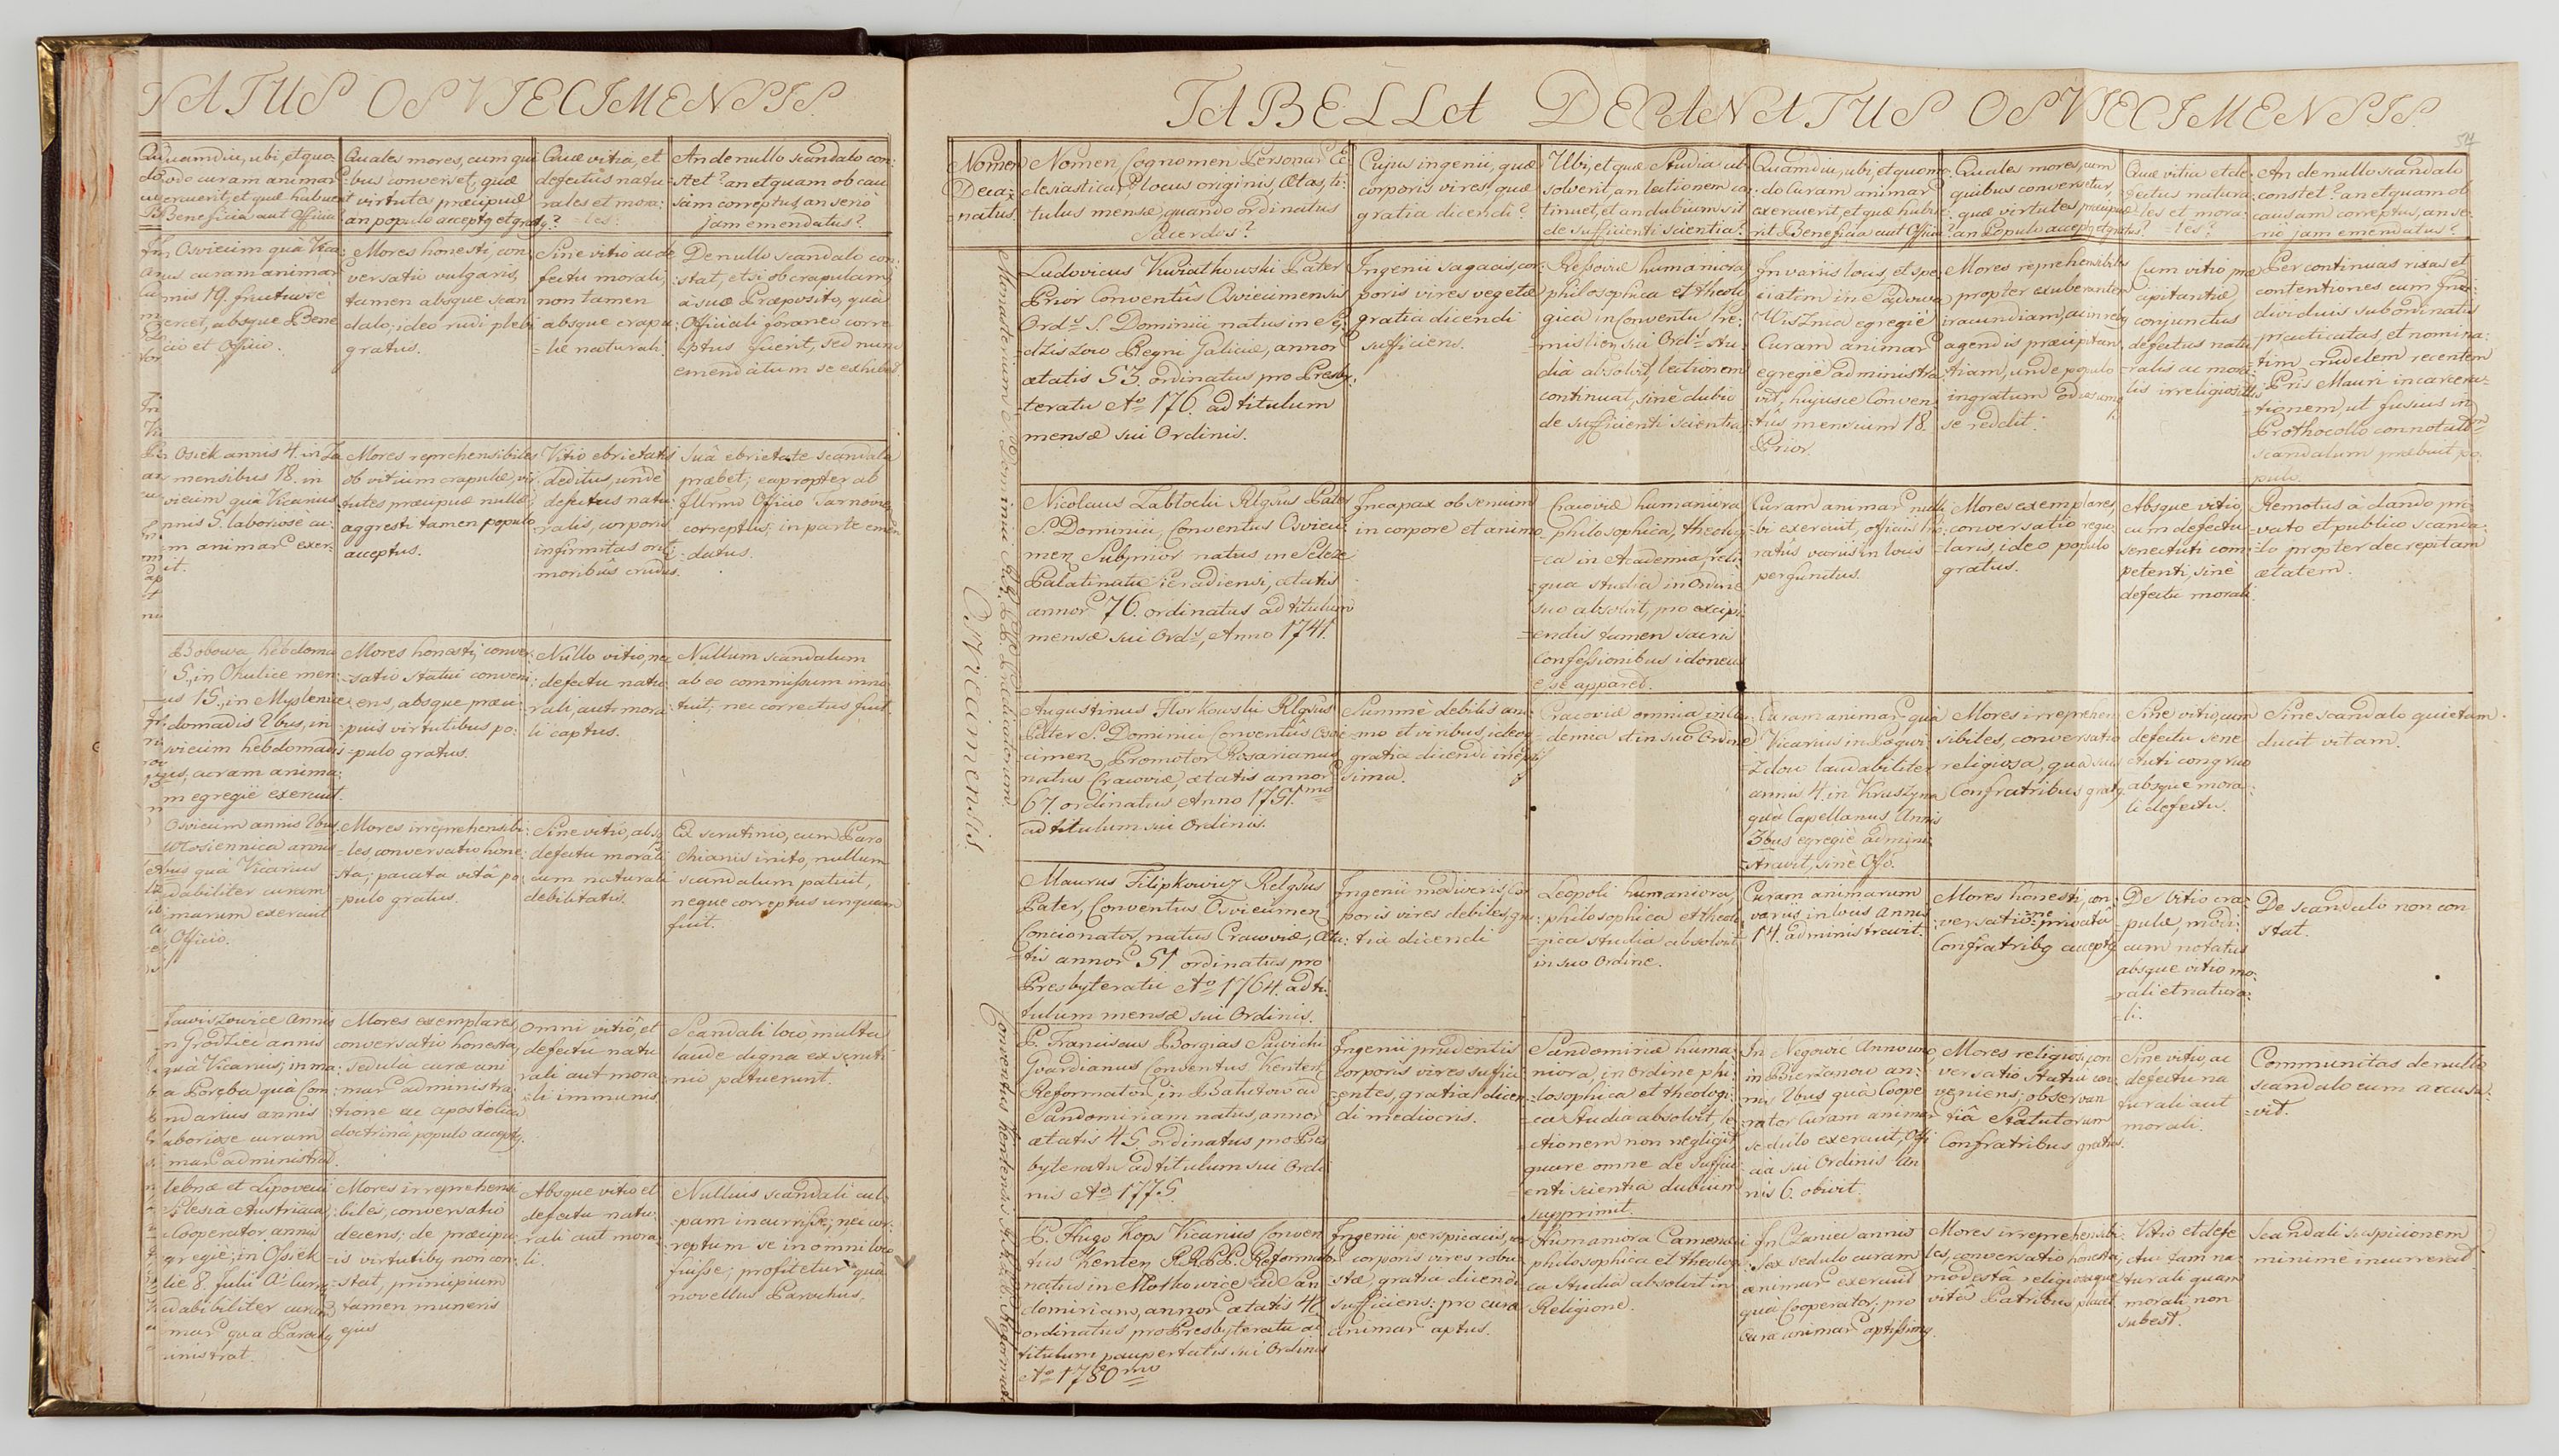 NATUS OSVIECIMENSIS.
Quamdiu, ubi, et quo-
modo curam animar.
exercuerit, et quæ habuerit
Beneficia aut Officia
Quales mores, cum qui
bus converset, quæ
virtutes præcipuæ
an populo acceptg et gratg?
Quæ vitia, et
defectus natu
rales et mora:
les?
An de nullo scandalo con:
stet? an et quam ob cau
sam correptus, an serio
jam emendatus?
Osviecim quà Vica
curam animar
annis 19. fructuosè
exercet, absque Bene
ficio et Officio.
Mores honesti, con
versatio vulgaris,
tamen absque scan
dalo, ideo rudi plebi
gratus.
Sine vitio ac de
fectu morali,
non tamen
absque crapu
læ naturali.
De nullo scandalo con:
stat, etsi ob crapulam
à suo Præposito, quà
Officiali foraneo corre
ptus fuerit, sed nunc
emendatum se exhibet
Osiek annis 4. in
mensibus 18. in
Osviecim quà Vicarius
annis 5. laboriosè cu:
ram animar exer
cuit.
Mores reprehensibiles
ob vitium crapulæ, vir
tutes præcipuæ nullæ,
aggresti tamen populo
acceptus.
Vitio ebrietatis
deditus, unde
defectus natu
ralis, corporis
infirmitas orit
moribus crudus.
Suâ ebrietate scandala
præbet; eapropter ab
Illrmo Officio Tarnovien
correptus, in parte emen
datus.
Bobowa hebdoma
5, in Chulice men:
15, in Myslenice
hebdomadis 2bus, in
Osviecim hebdomadis
curam anima:
rum egregiè exercuit.
Mores honesti, conver
satio statui conveni
ens, absque præci
puis virtutibus po:
pulo gratus.
Nullo vitio, nec
defectu natu
rali, aut mora
li captus.
Nullum scandalum
ab eo commissum inno
tuit; nec correctus fuit.
Osviecim annis 2bus
Wosiennica annis
quà Vicarius
laudabiliter curam
animarum exercuit
Officio.
Mores irreprehensibi:
les conversatio hone:
sta; pacata vitâ po
pulo gratus.
Sine vitio, absq
defectu morali
cum naturali
debilitatis.
Ex scrutinio, cum Paro
chianis inito, nullum
scandalum patuit,
neque correptus unquam
fuit.
Jawiszowice annis
in Grodziec annis
quà Vicarius; in ma:
Poręba quà Com
mendarius annis
laboriose curam
animar administrat.
Mores exemplares
conversatio honesta,
sedulâ curæ ani
mar administra
tione ac apostolica
doctrinâ populo acceptg.
Omni vitio, et
defectu natu
rali aut mora
li immunis
Scandali loco multa
laude digna ex scruti
nio patuerunt.
et Lipoveii
Silesia Austriaca
Cooperator annis
egregiè; in Ossiek
die 8. Julii
laudabiliter curam
animar qua Parochg
administrat.
Mores irreprehensi
biles, conversatio
decens; de præcipu
is virtutibg non con:
stat, principium
tamen muneris
ejus
Absque vitio et
defectu natu:
rali aut mora
li.
Nullius scandali cul:
pam incurrisse; nec cor:
reptum se in omni loco
fuisse; profitetur quà
novellus Parochus.
TABELLA DECANATUS OSVIECIMENSIS.
54
Nomen
Deca:
natus.
Nomen, Cognomen Personar Ec
clesiasticar, locus originis, Ætas, ti:
tulus mensæ, quando ordinatus
Sacerdos?
Cujus ingenii, quæ
corporis vires, quæ
gratia dicendi?
Ubi, et quæ Studia ab
solverit, an lectionem con
tinuet, et an dubium sit
de sufficienti scientia?
Quamdiu, ubi, et quomo:
do Curam animar
exercuerit, et quæ habue
rit Beneficia aut Officia?
Quales mores, cum
quibus conversetur,
quæ virtutes, præcipuæ
an Populo acceptg et gratus?
Quæ vitia et de:
fectus natura:
les et mora:
les?
An de nullo scandalo
constet? an et quam ob
causam correptus, an se:
rio jam emendatus?
Monasterium S. Dominici RR. PP. Prædicatorum
Osviecimensis
Ludovicus Kwiatkowski Pater
Prior Conventûs Osviecimensis
Ordis S. Dominici natus in Sę:
dziszow Regni Galiciæ, annor
ætatis 53. ordinatus pro Presby:
teratu Ao 176. ad titulum
mensæ sui Ordinis.
Ingenii sagacis, cor:
poris vires vegetæ
gratia dicendi
sufficiens.
Ressoviæ humaniora
philosophica et theolo
gica in Conventu Pre:
misliensi sui Ordis stu:
dia absolvit, lectionem
continuat, sinè dubio
de sufficienti scientia
In variis locis, et spe
ciatim in
Wisznia egregiè
Curam animar
egregiè administra
vit, hujusce Conven
tûs mensium 18.
Prior.
Mores reprehensibiles
propter exuberantem
iracundiam, ac in rebg
agendis præcipitan
tiam, unde populo
ingratum
se reddit.
Cum vitio præ
cipitantiæ,
conjunctus
defectus natu
ralis ac mora
lis irreligiositatis
Per continuas rixas et
contentiones cum
dividuis subordinatis
practicatas, et nomina:
tim crudelem recentem
Pris Mauri incarcera
tionem, ut fusius in
Prothocollo connotatur
scandalum præbuit po
pulo.
Nicolaus Zabtocki Rlgsus Pater
S. Dominici, Conventus Osvieci:
men Subprior natus in Sclcze
Palatinatu Sieradiensi, ætatis
annor 76. ordinatus ad titulum
mensæ sui Ordis, Anno 1741.
Incapax ob senium
in corpore et animo
Cracoviæ humaniora
philosophica, theologi
ca in Academia, reli:
qua studia in Ordine
suo absolvit, pro excipi
endis tamen sacris
confessionibus idoneus
esse apparet.
Curam animar nulli
bi exercuit, officiis
variis in locis
perfunctus.
Mores exemplares,
conversatio regu
laris, ideo populo
gratus.
Absque vitio,
cum defectu
senectuti com
petenti, sinè
defectu morali
Remotus à dando pri
vato et publico scanda
lo propter decrepitam
ætatem.
Augustinus Florkowski Rlgsus
Pater S. Dominici Conventûs Osvie
cimen, Promotor Rosarianus
natus Cracoviæ, ætatis annor
67. ordinatus Anno 1751mo
ad titulum sui Ordinis.
Summè debilis ani
mo et viribus, ideo
gratia dicendi inepti
ssima.
Cracoviæ omnia in Ca:
demia et in suo Ordine
Curam animar quà
Vicarius in
laudabiliter
annis 4. in Kruszyna
quà Capellanus Annis
3bus egregiè admini
stravit, sinè Offo.
Mores irreprehen
sibiles, conversatio
religiosa, qua suis
Confratribus gratg.
Sine vitio, cum
defectu sene
ctuti congruo
absque mora:
li defectu.
Sine scandalo quietam
ducit vitam.
Maurus Filipkowicz Relgsus
Pater, Conventus Osviecimen
Concionator, natus Cracoviæ, æta:
tis annor 51 ordinatus pro
Presbyteratu Ao 1764. ad ti:
tulum mensæ sui Ordinis.
Ingenii mediocris, cor
poris vires debiles, gra:
tia dicendi
Leopoli humaniora,
philosophica et theolo
gica studia absolvit
in suo Ordine.
Curam animarum
variis in locis Annis
14. administravit.
Mores honesti, con:
versatione privatâ
Confratribg acceptg
De vitio cra:
pulæ, modi:
cum notatus
absque vitio mo
rali et natura:
li.
De scandalo non con
stat.
Conventus Kentensis RR. PP. Reformat
P. Franciscus Borgias Sawicki
Gvardianus Conventus Kenten
Reformator, in Batutow ad
Sandomiriam natus, annor
ætatis 45. ordinatus pro Pres
byteratu ad titulum sui Ordi
nis Ao 1775
Ingenii prudentis
corporis vires suffici
entes, gratia dicen
di mediocris.
Sandomiriæ huma:
niora, in Ordine phi
losophica et theologi:
ca Studia absolvit, le
ctionem non negligit
quare omne de suffici
enti scientia dubium
supprimit.
In Negowić Anno uno
in Bierzanow an:
nis 2bus quà Coope
rator Curam animar
sedulo exercuit, Offi
cia sui Ordinis An
nis 6. obivit.
Mores religiosi, con
versatio statui con
veniens; observan
tiâ Statutorum
Confratribus gratus.
Sine vitio, ac
defectu na
turali aut
morali.
Communitas de nullo
scandalo eum accusa:
vit.
P. Hugo Kops Vicarius Conven
tus Kenten RR. PP. Reformator
natus in Motkowice ad San
domiriam, annor ætatis 40
ordinatus pro Presbyteratu ad
titulum paupertatis sui Ordinis
Ao 1780mo
Ingenii perspicacis,
corporis vires robu
stæ, gratia dicendi
sufficiens: pro cura
animar aptus.
Humaniora
philosophica et theologi
ca Studia absolvit in
Religione.
In Czaniec annis
sex sedulo curam
animar exercuit
qua Cooperator, pro
cura animar aptissimg.
Mores irreprehensibi
les, conversatio honesta,
modestâ religiosaque
vitâ Patribus placet
Vitio et defe
ctu tam na
turali quam
morali non
subest.
Scandali suspicionem
minime incurrerat.